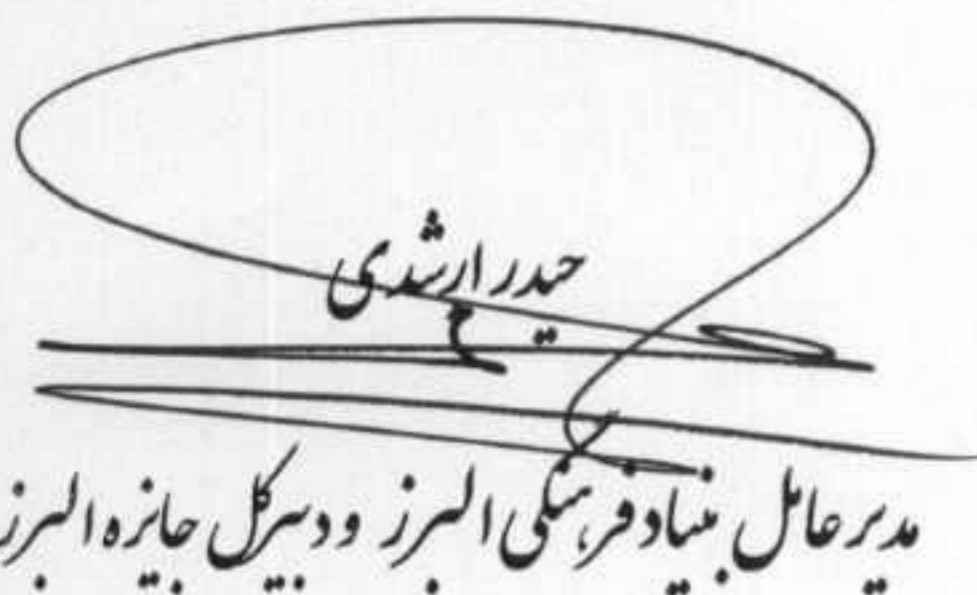 حیدر ارشدی
مدیر عامل بنیاد فرهنگی البرز و دبیرکل جایزه البرز